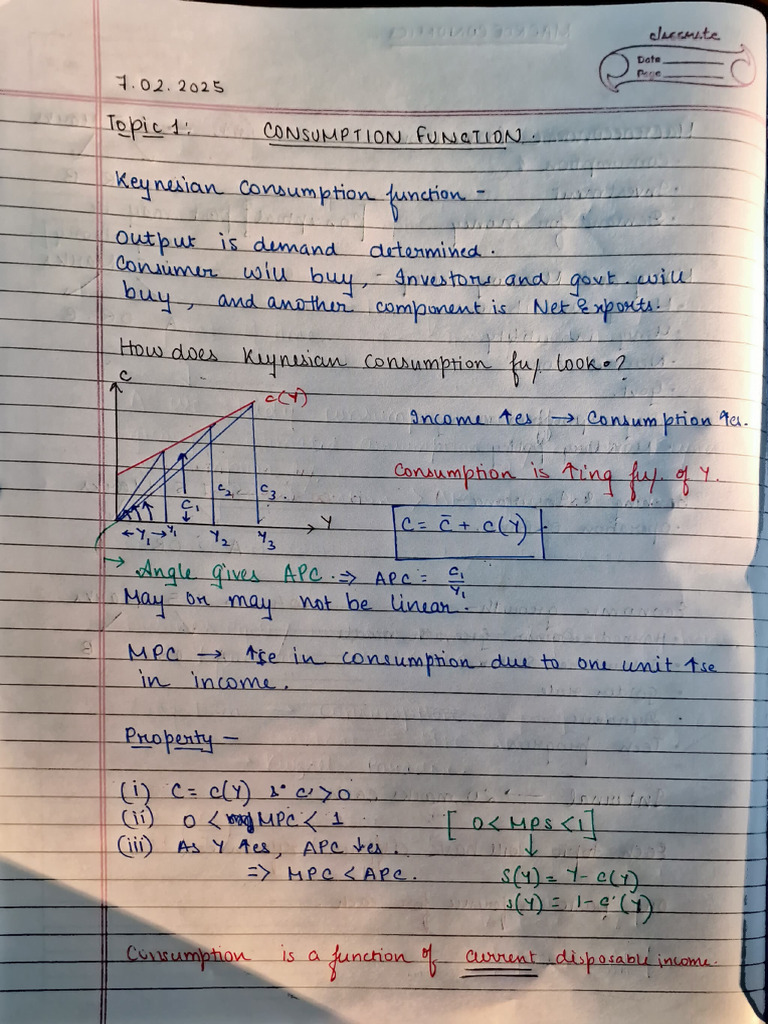 classmate
Date
Page
7.02.2025
Topic 1: CONSUMPTION FUNCTION.
Keynesian consumption function -
Output is demand determined.
Consumer will buy, Investors and govt. will
buy, and another component is Net Exports.
How does Keynesian consumption fn/ look?
C
C(Y)
Income ↑es → Consumption ↑es.
Consumption is ↑ing fn/ of Y.
C₁ C₂ C₃.
C = C̄ + C(Y)
←Y₁→ Y₁ Y₂ Y₃ Y
→ Angle gives APC. ⇒ APC = C₁/Y₁
May or may not be linear.
MPC → ↑se in consumption due to one unit ↑se
in income.
Property -
(i) C = C(Y) s· c' > 0
(ii) 0 < MPC < 1 [0 < MPS < 1]
(iii) As Y ↑es, APC ↓es. ↓
⇒ MPC < APC. S(Y) = Y - C(Y)
s'(Y) = 1 - c'(Y)
Consumption is a function of current disposable income.